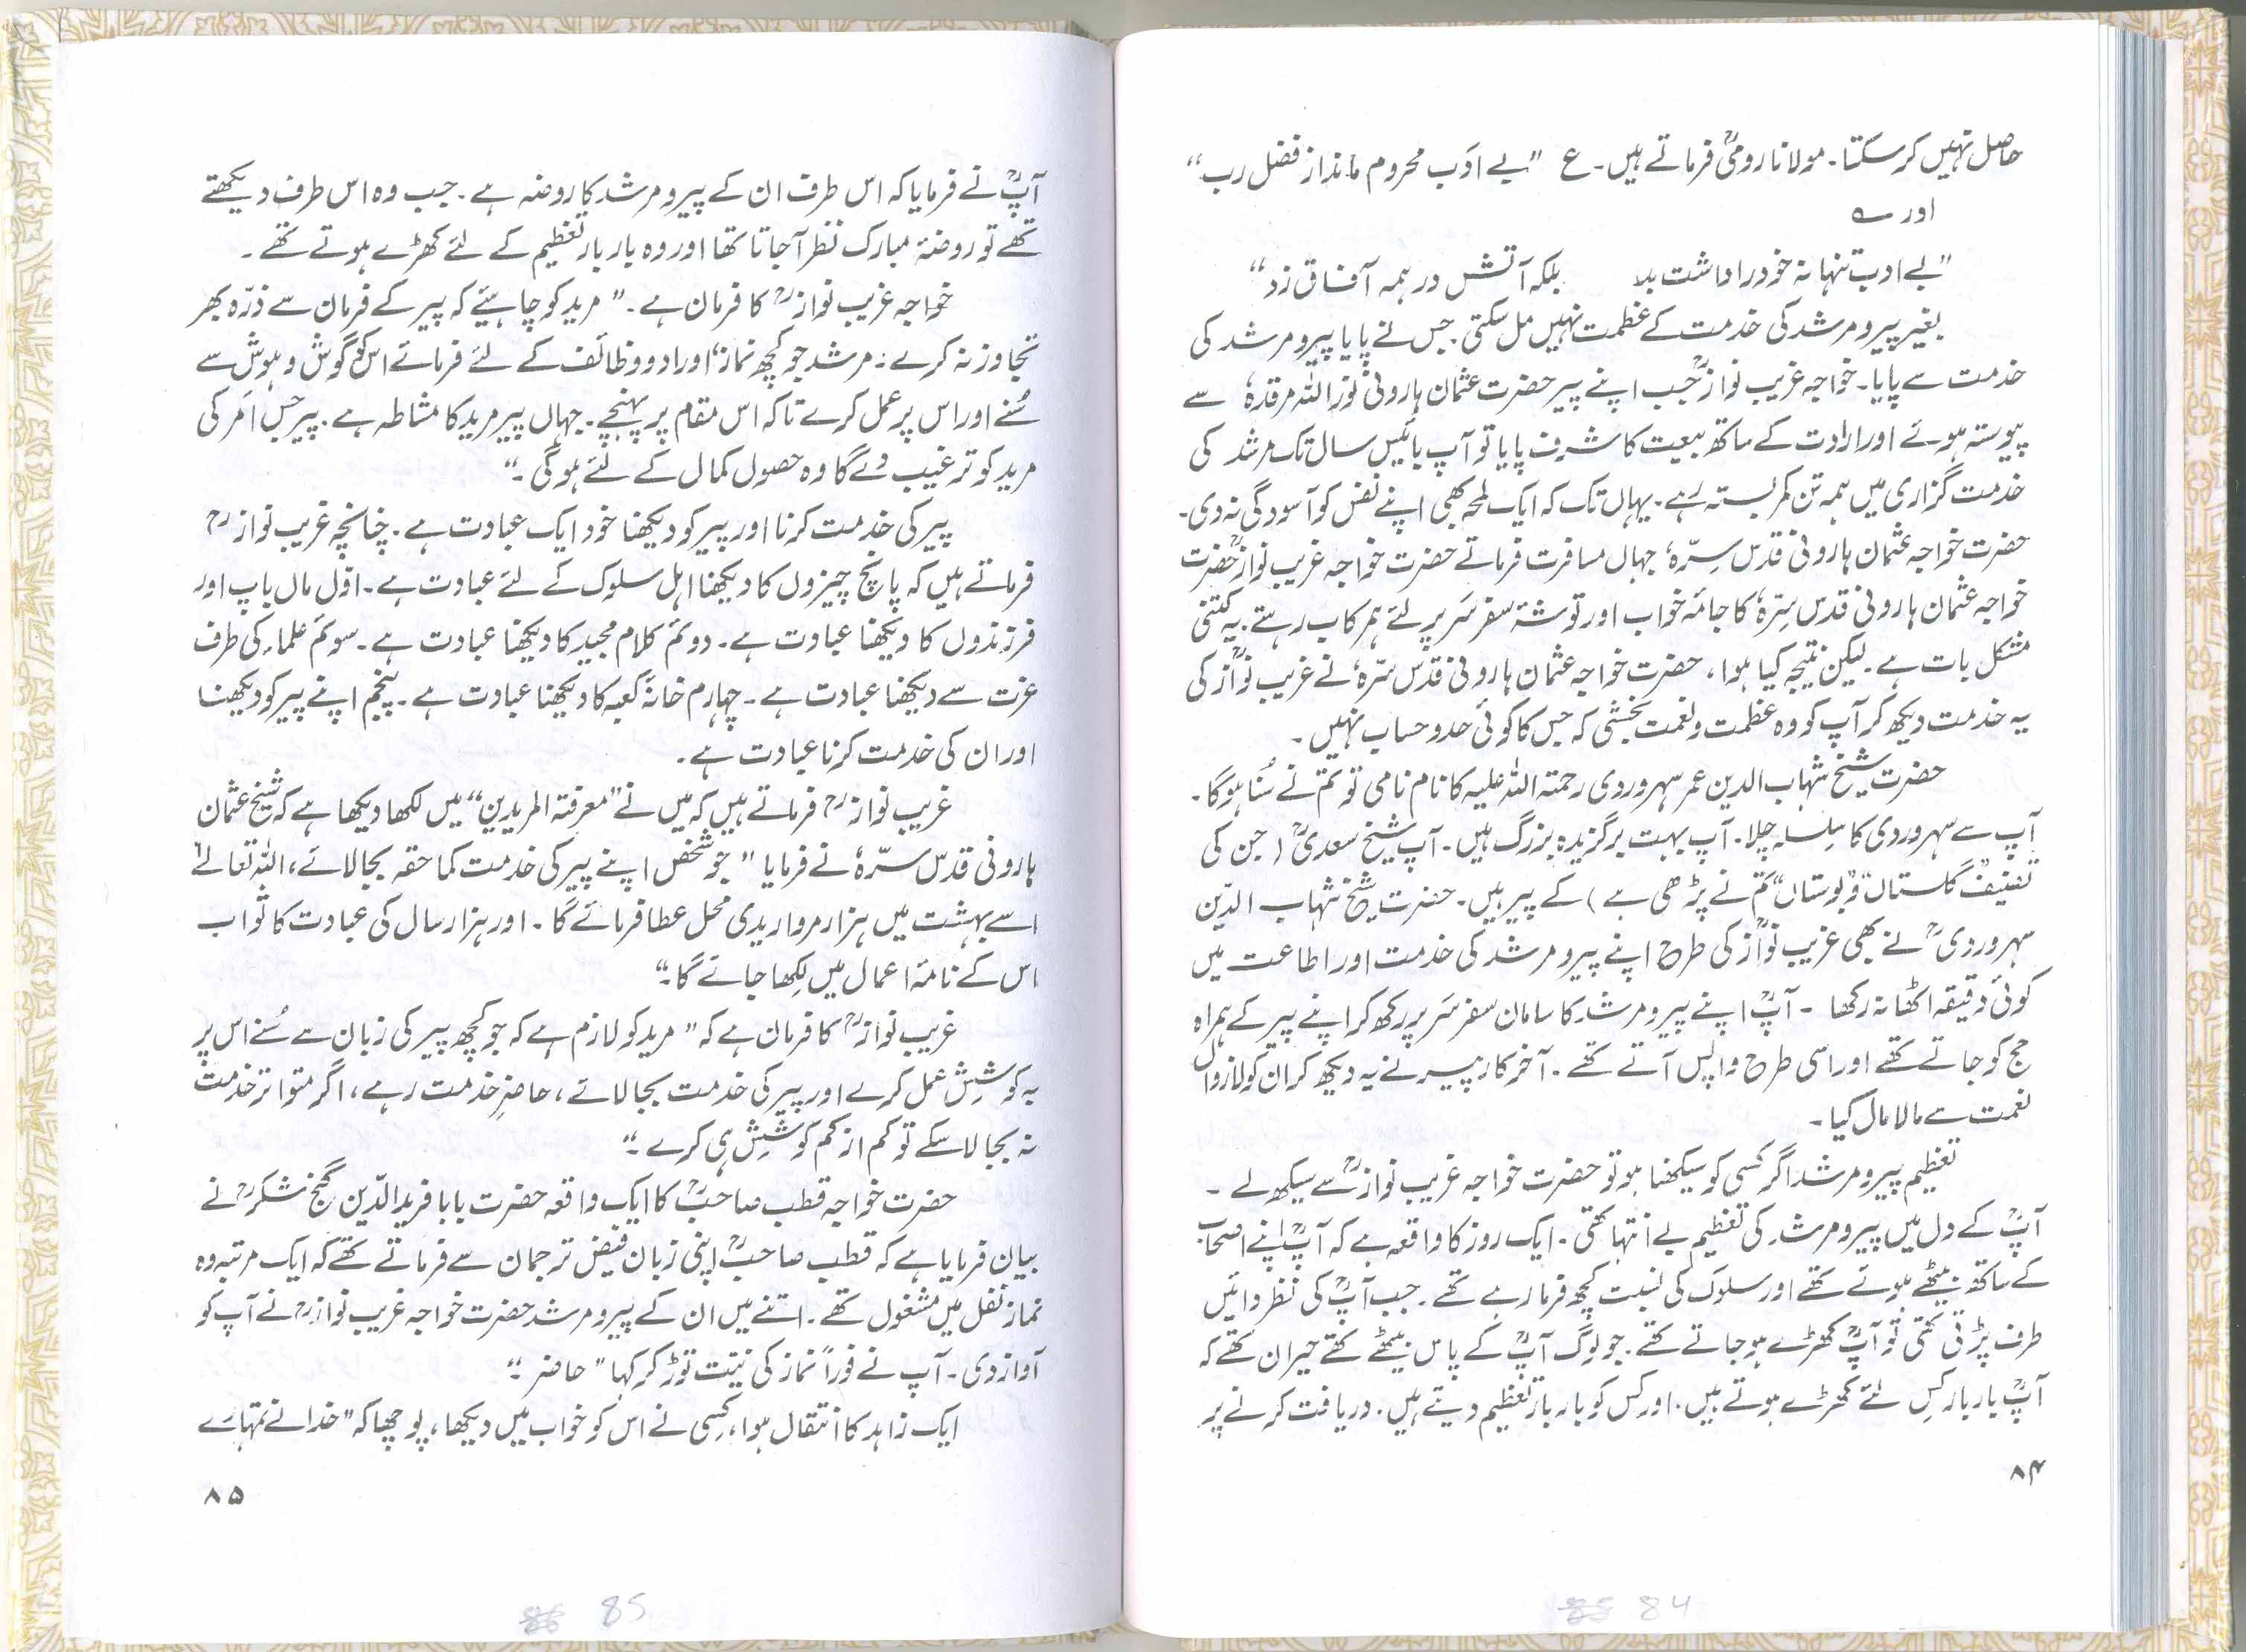 حاصل نہیں کر سکتا۔ مولانا رومیؒ فرماتے ہیں۔ ع "بے ادَب محروم مانداز فضل رب"
اور ؎
"بے ادب تنہا نہ خود را داشت بد بلکہ آتش در ہمہ آفاق زد"
بغیر پیرو مرشد کی خدمت کے عظمت نہیں مل سکتی۔ جس نے پایا پیرو مرشد کی
خدمت سے پایا۔ خواجہ غریب نوازؒ جب اپنے پیر حضرت عثمان ہارونی نوراللہ مرقدہٗ سے
پیوستہ ہوئے اور ارادت کے ساتھ بیعت کا شرف پایا تو آپ بائیس سال تک مرشد کی
خدمت گزاری میں ہمہ تن کمربستہ رہے۔ یہاں تک کہ ایک لمحہ بھی اپنے نفس کو آسودگی نہ دی۔
حضرت خواجہ عثمان ہارونی قدس سِرّہٗ جہاں مسافرت فرماتے حضرت خواجہ غریب نوازؒ حضرت
خواجہ عثمان ہارونی قدس سِرّہٗ کا جامۂ خواب اور توشۂ سفر سَر پر لئے ہمرکاب رہتے۔ یہ کتنی
مشکل بات ہے۔ لیکن نتیجہ کیا ہوا، حضرت خواجہ عثمان ہارونی قدس سّرہٗ نے غریب نوازؒ کی
یہ خدمت دیکھ کر آپ کو وہ عظمت و نعمت بخشی کہ جس کا کوئی حد و حساب نہیں۔
حضرت شیخ شہاب الدین عمر سہروردی رحمتہ اللہ علیہ کا نام نامی تو تم نے سُنا ہوگا۔
آپ سے سہروردی کا سلسلہ چلا۔ آپ بہت برگزیدہ بزرگ ہیں۔ آپ شیخ سعدیؒ (جن کی
تصنیف "گلستاں" و "بوستاں" تم نے پڑھی ہے) کے پیر ہیں۔ حضرت شیخ شہاب الدّین
سہروردیؒ نے بھی غریب نوازؒ کی طرح اپنے پیرو مرشد کی خدمت اور اطاعت میں
کوئی دقیقہ اٹھا نہ رکھا ۔ آپؒ اپنے پیرو مرشد کا سامان سفر سَر پر رکھ کر اپنے پیر کے ہمراہ
حج کو جاتے تھے اور اسی طرح واپس آتے تھے۔ آخر کار پیر نے یہ دیکھ کر ان کو لازوال
نعمت سے مالا مال کیا۔
تعظیم پیرو مرشد اگر کسی کو سیکھنا ہو تو حضرت خواجہ غریب نوازؒ سے سیکھ لے ۔
آپؒ کے دل میں پیرو مرشد کی تعظیم بے انتہا تھی۔ ایک روز کا واقعہ ہے کہ آپؒ اپنے اصحاب
کے ساتھ بیٹھے ہوئے تھے اور سلوک کی نسبت کچھ فرما رہے تھے۔ جب آپؒ کی نظر دائیں
طرف پڑتی تھی تو آپؒ کھڑے ہو جاتے تھے۔ جو لوگ آپؒ کے پاس بیٹھے تھے حیران تھے کہ
آپؒ بار بار کس لئے کھڑے ہوتے ہیں۔ اور کس کو بار بار تعظیم دیتے ہیں۔ دریافت کرنے پر
۸۴
84
آپؒ نے فرمایا کہ اس طرف ان کے پیرو مرشد کا روضہ ہے۔ جب وہ اس طرف دیکھتے
تھے تو روضۂ مبارک نظر آجاتا تھا اور وہ بار بار تعظیم کے لئے کھڑے ہوتے تھے۔
خواجہ غریب نوازؒ کا فرمان ہے۔ "مرید کو چاہیئے کہ پیر کے فرمان سے ذرّہ بھر
تجاوز نہ کرے۔ مرشد جو کچھ نماز، اوراد و وظائف کے لئے فرمائے اس کو گوش و ہوش سے
سُنے اور اس پر عمل کرے تاکہ اس مقام پر پہنچے۔ جہاں پیر مرید کا مشاطہ ہے۔ پیر جس اَمر کی
مرید کو ترغیب دے گا وہ حصول کمال کے لئے ہوگی۔"
پیر کی خدمت کرنا اور پیر کو دیکھنا خود ایک عبادت ہے۔ چنانچہ غریب نوازؒ
فرماتے ہیں کہ پانچ چیزوں کا دیکھنا اہل سلوک کے لئے عبادت ہے۔ اوّل ماں باپ اور
فرزندوں کا دیکھنا عبادت ہے۔ دوئم کلام مجید کا دیکھنا عبادت ہے۔ سوئم علماء کی طرف
عزت سے دیکھنا عبادت ہے۔ چہارم خانۂ کعبہ کا دیکھنا عبادت ہے۔ پنجم اپنے پیر کو دیکھنا
اور ان کی خدمت کرنا عبادت ہے۔
غریب نوازؒ فرماتے ہیں کہ میں نے "معرفتہ المریدین" میں لکھا دیکھا ہے کہ شیخ عثمان
ہارونی قدس سرّہٗ نے فرمایا "جو شخص اپنے پیر کی خدمت کما حقہ بجا لائے، اللہ تعالےٰ
اسے بہشت میں ہزار مرواریدی محل عطا فرمائے گا۔ اور ہزار سال کی عبادت کا ثواب
اس کے نامۂ اعمال میں لِکھا جائے گا۔"
غریب نوازؒ کا فرمان ہے کہ "مرید کو لازم ہے کہ جو کچھ پیر کی زبان سے سُنے اس پر
بہ کوشِش عمل کرے اور پیر کی خدمت بجا لائے، حاضرِ خدمت رہے، اگر متواتر خدمت
نہ بجا لا سکے تو کم از کم کوشِش ہی کرے۔"
حضرت خواجہ قطب صاحبؒ کا ایک واقعہ حضرت بابا فریدالدّین گنج شکرؒ نے
بیان فرمایا ہے کہ قطب صاحبؒ اپنی زبان فیض ترجمان سے فرماتے تھے کہ ایک مرتبہ وہ
نماز نفل میں مشغول تھے۔ اتنے میں ان کے پیرو مرشد حضرت خواجہ غریب نوازؒ نے آپ کو
آواز دی۔ آپ نے فوراً نماز کی نیّت توڑ کر کہا "حاضر۔"
ایک زاہد کا انتقال ہوا، کِسی نے اس کو خواب میں دیکھا، پوچھا کہ "خدا نے تمہارے
۸۵
85